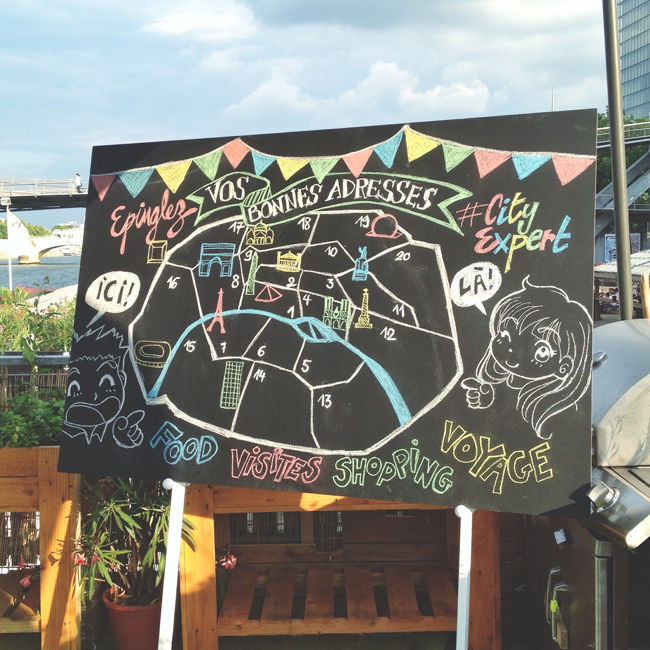 Epinglez
VOS
BONNES ADRESSES
#City
Expert
17 18 19
16 8 9 10 20
2 3
1 4 11
15 7 6 5 12
14 13
ICI!
LÀ!
FOOD VISITES SHOPPING VOYAGE